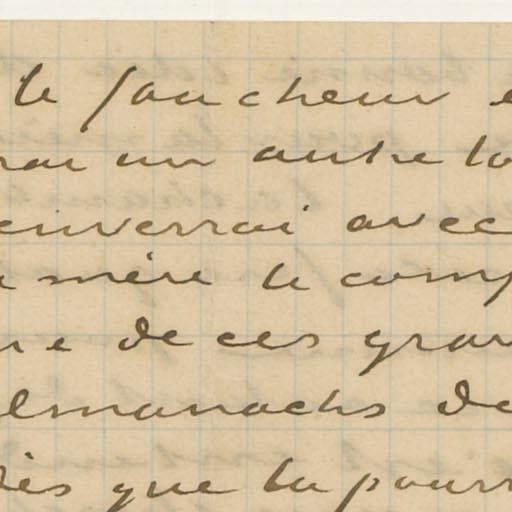 le faucheur e
rai un autre to
enverrai avec
a mère le comp
re de ces gran
almanachs de
rès que tu pourr